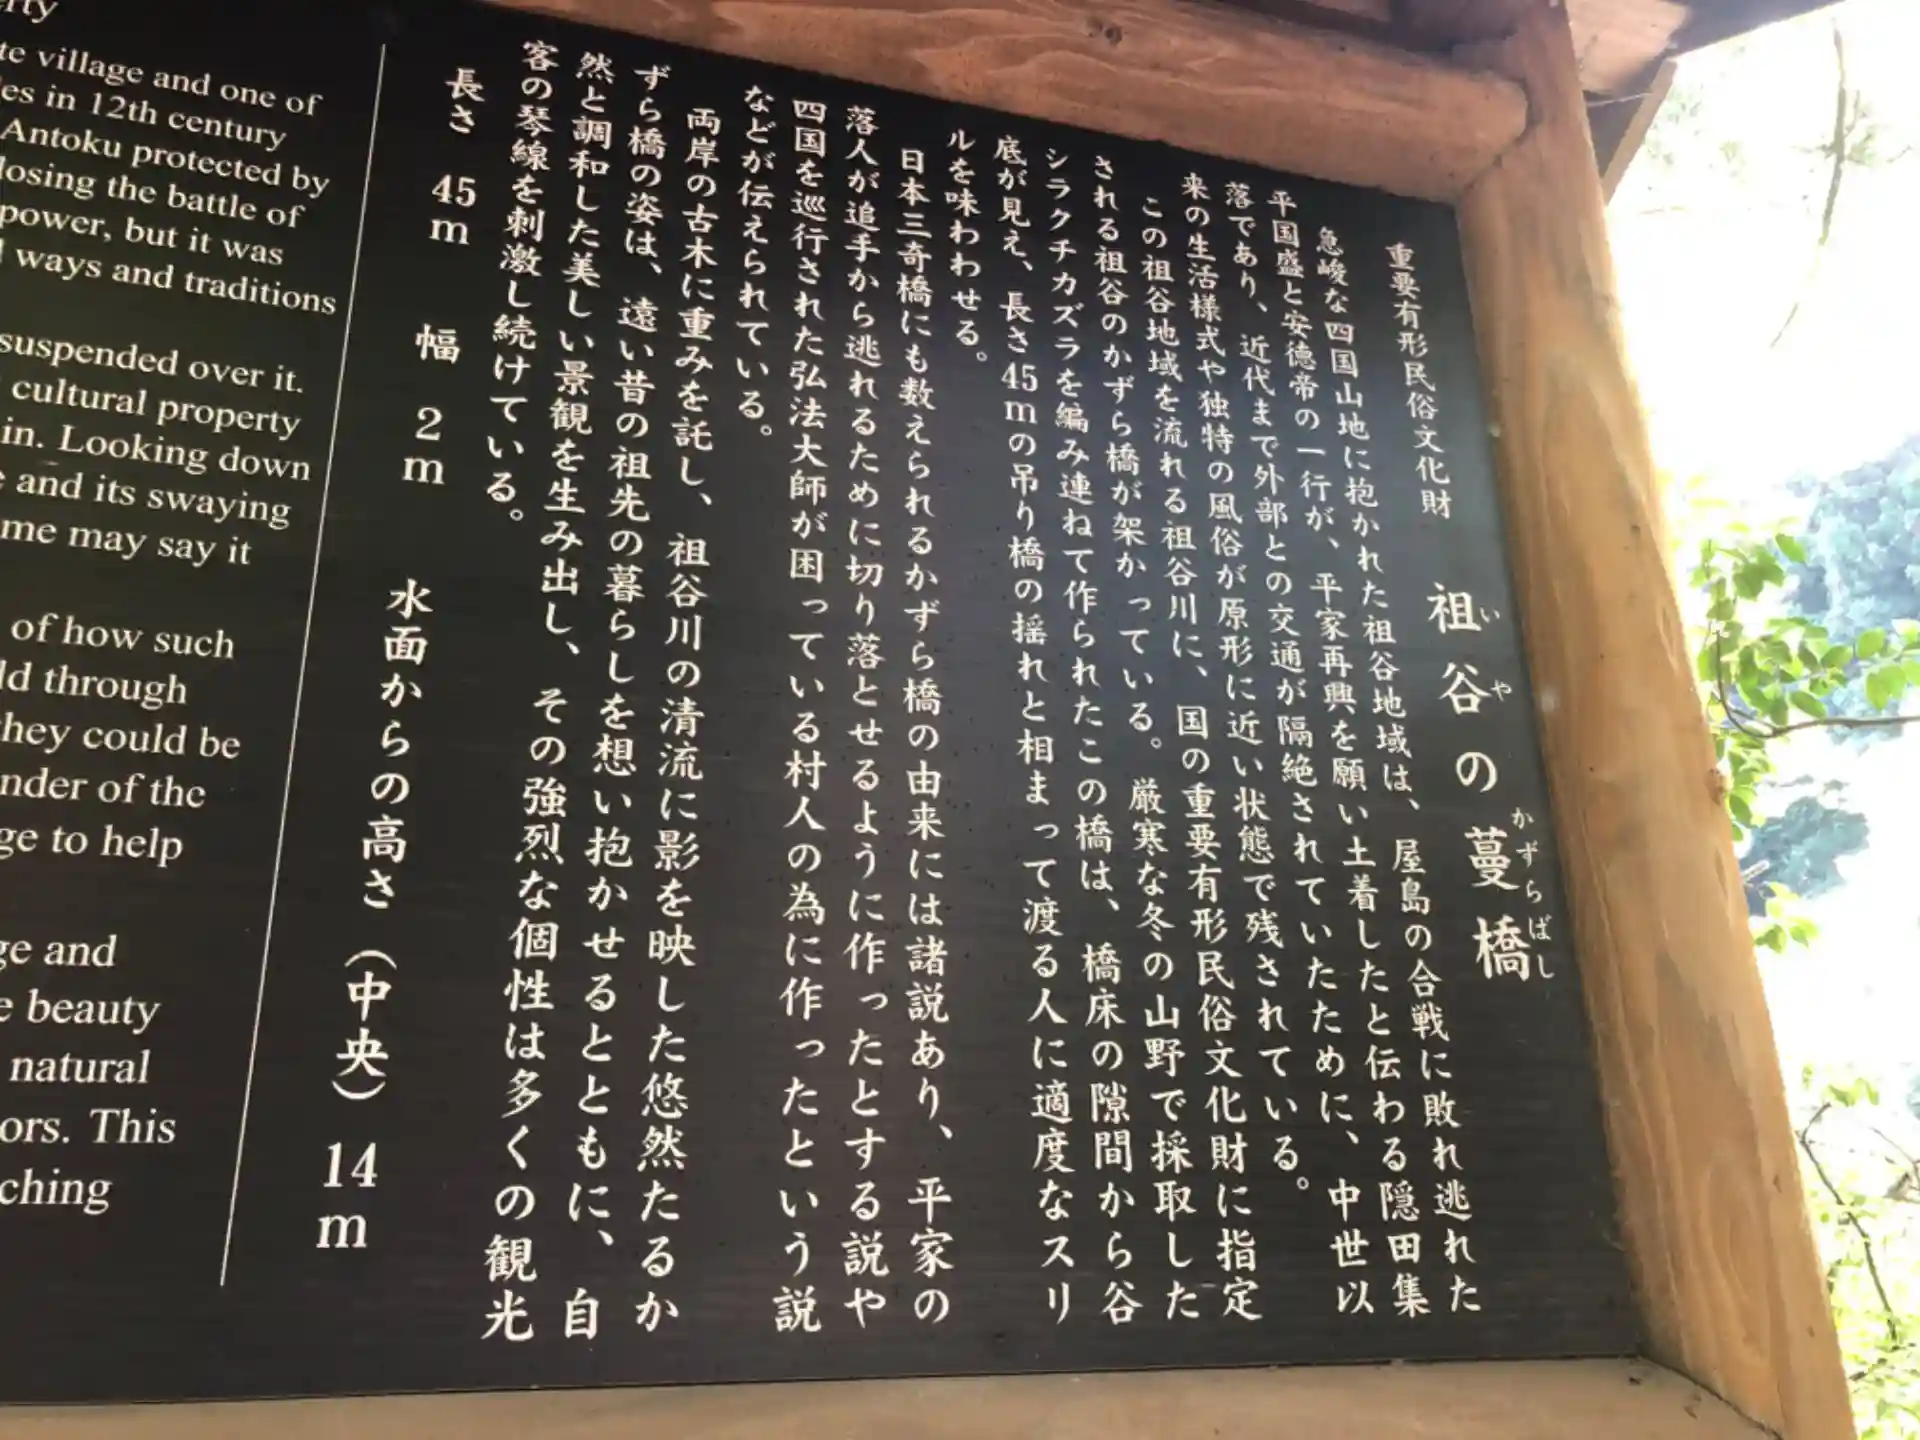 重要有形民俗文化財　祖谷の蔓橋
いやかずらばし
急峻な四国山地に抱かれた祖谷地域は、屋島の合戦に敗れ逃れた
平国盛と安徳帝の一行が、平家再興を願い土着したと伝わる隠田集
落であり、近代まで外部との交通が隔絶されていたために、中世以
来の生活様式や独特の風俗が原形に近い状態で残されている。
この祖谷地域を流れる祖谷川に、国の重要有形民俗文化財に指定
される祖谷のかずら橋が架かっている。厳寒な冬の山野で採取した
シラクチカズラを編み連ねて作られたこの橋は、橋床の隙間から谷
底が見え、長さ45mの吊り橋の揺れと相まって渡る人に適度なスリ
ルを味わわせる。
日本三奇橋にも数えられるかずら橋の由来には諸説あり、平家の
落人が追手から逃れるために切り落とせるように作ったとする説や
四国を巡行された弘法大師が困っている村人の為に作ったという説
などが伝えられている。
両岸の古木に重みを託し、祖谷川の清流に影を映した悠然たるか
ずら橋の姿は、遠い昔の祖先の暮らしを想い抱かせるとともに、自
然と調和した美しい景観を生み出し、その強烈な個性は多くの観光
客の琴線を刺激し続けている。
長さ　45m　幅　2m　水面からの高さ（中央）14m
village and one of
in 12th century
Antoku protected by
losing the battle of
power, but it was
ways and traditions
suspended over it.
cultural property
in. Looking down
and its swaying
me may say it
of how such
ld through
they could be
nder of the
ge to help
ge and
beauty
natural
ors. This
ching